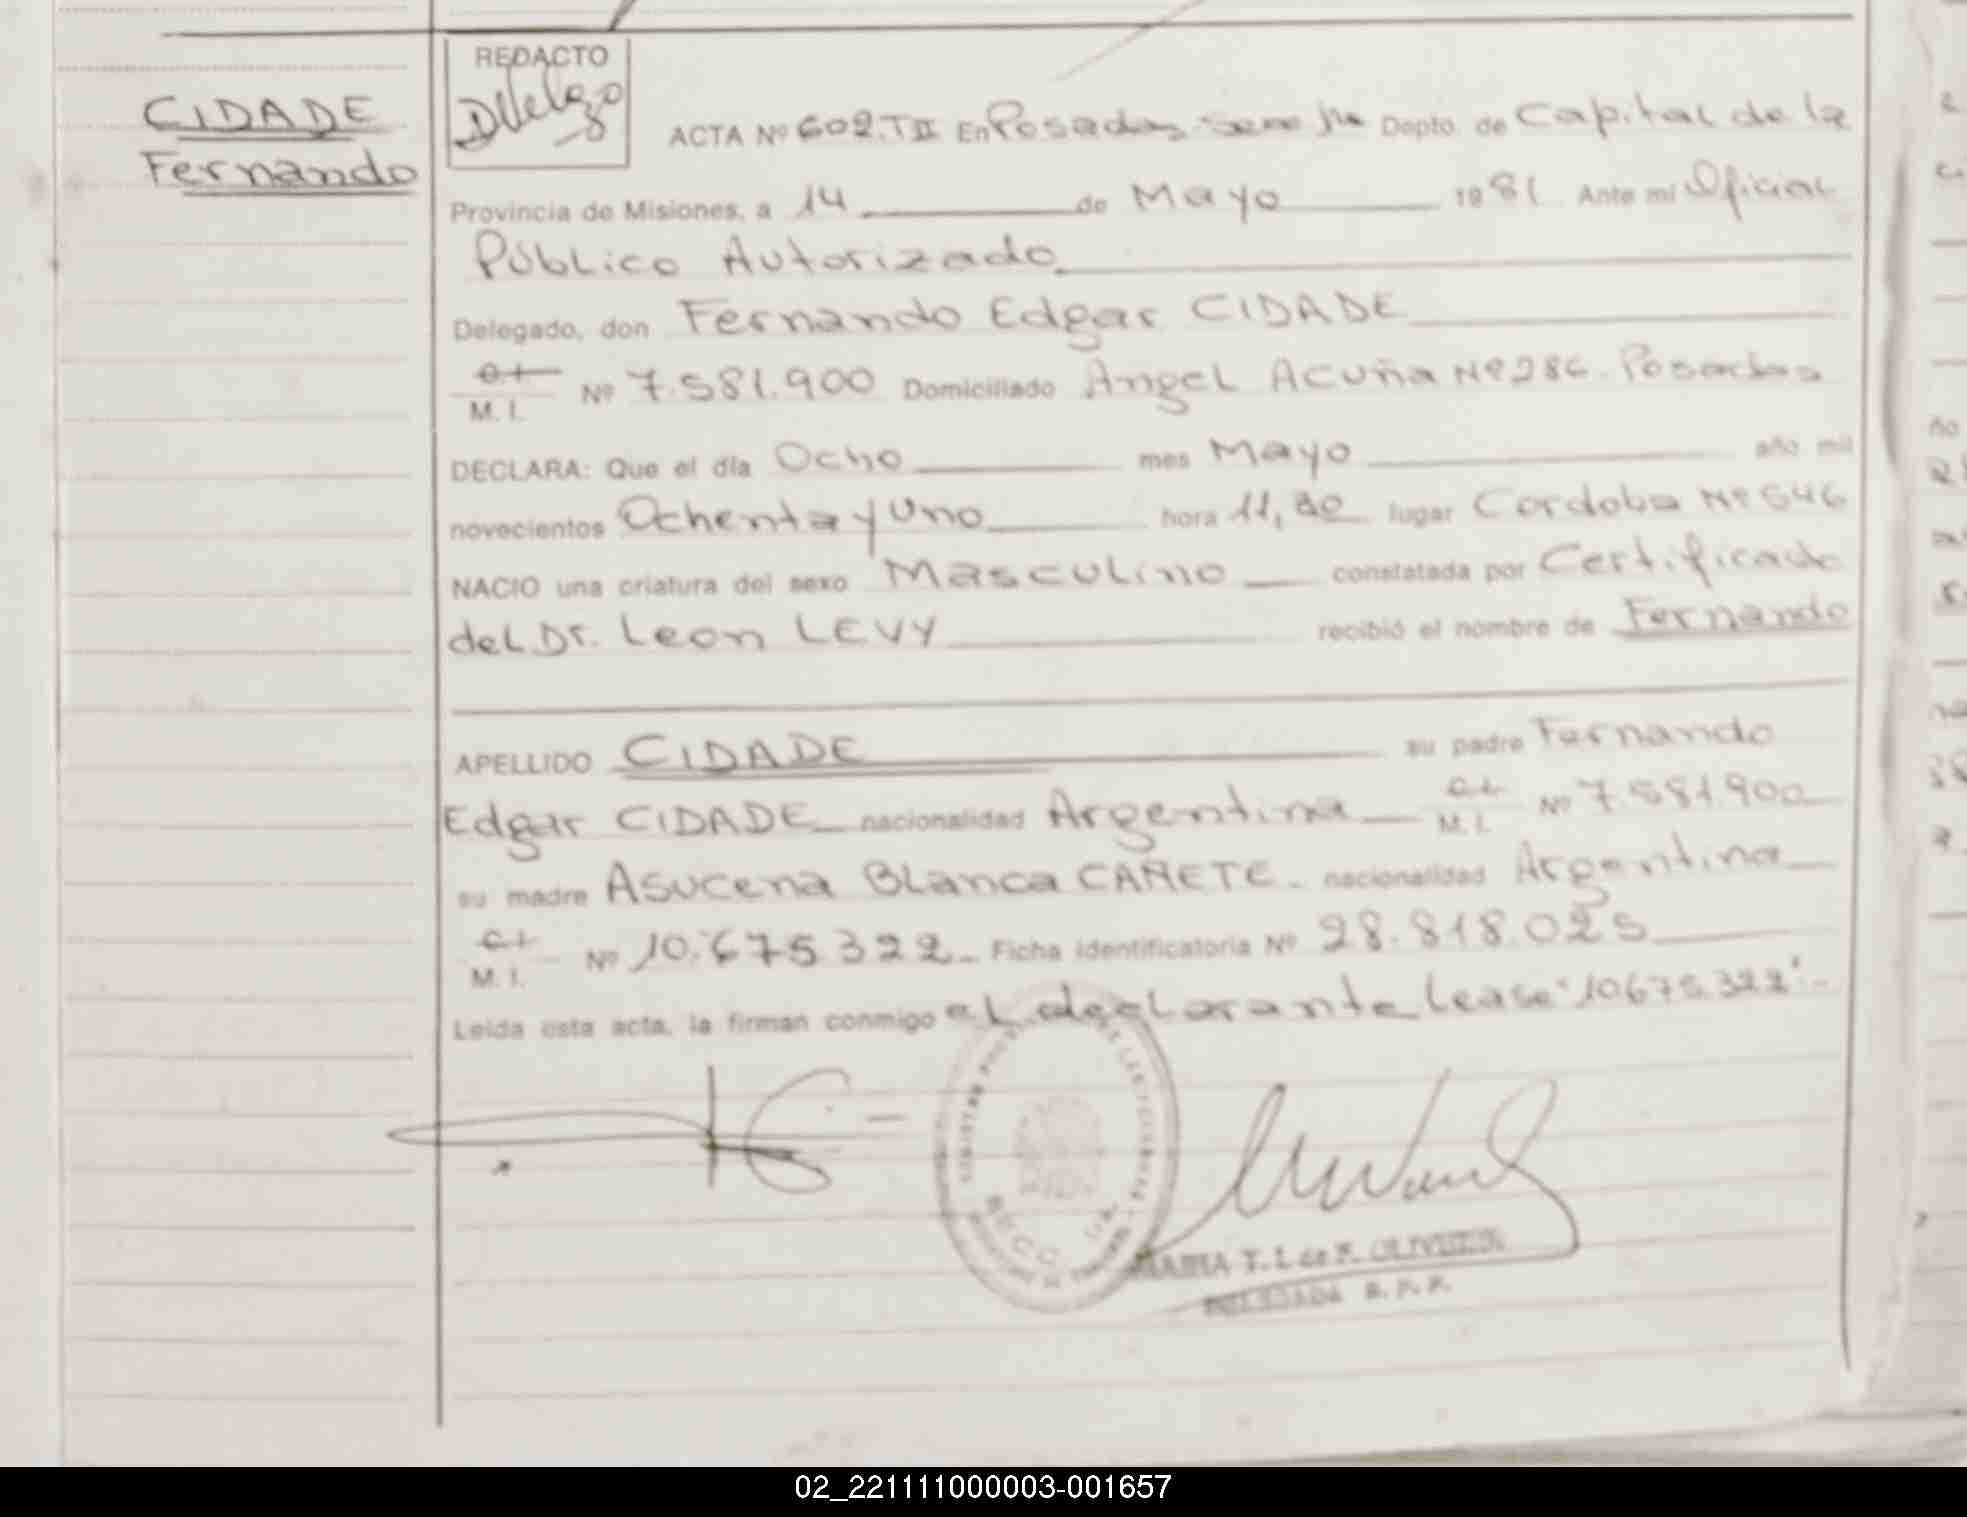 CIDADE
Fernando
REDACTO
ACTA Nº 602.TII En Posadas Depto. de Capital de la
Provincia de Misiones, a 14 de Mayo 1981 Ante mí Oficial
Público Autorizado
Delegado, don Fernando Edgar CIDADE
C.I.
M. I. Nº 7.581.900 Domiciliado Angel Acuña Nº 286. Posadas
DECLARA: Que el día Ocho mes Mayo año mil
novecientos Ochenta y Uno hora 11,30 lugar Cordoba Nº 546
NACIO una criatura del sexo Masculino constatada por Certificado
del Dr. Leon LEVY recibió el nombre de Fernando
APELLIDO CIDADE su padre Fernando
Edgar CIDADE nacionalidad Argentina C.I. M. I. Nº 7.581.900
su madre Asucena Blanca CAÑETE nacionalidad Argentina
C.I.
M. I. Nº 10.675.322 Ficha identificatoria Nº 28.818.025
Leída esta acta, la firman conmigo el declarante Lease "10675.322".-
MARIA T. L. de F. OLIVEIRA
DELEGADA R. P. P.
02_221111000003-001657